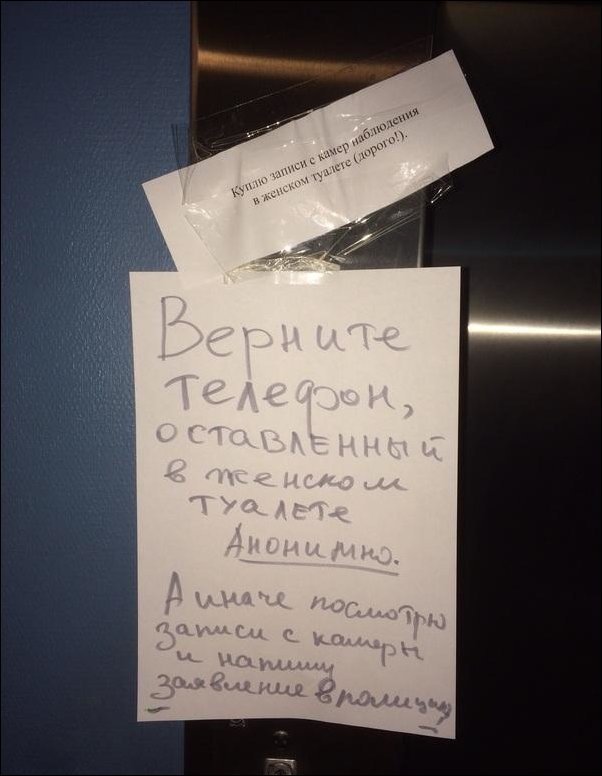 Куплю записи с камер наблюдения
в женском туалете (дорого!).
Верните
телефон,
оставленный
в женском
туалете
Анонимно.
А иначе посмотрю
записи с камеры
и напишу
заявление в полицию